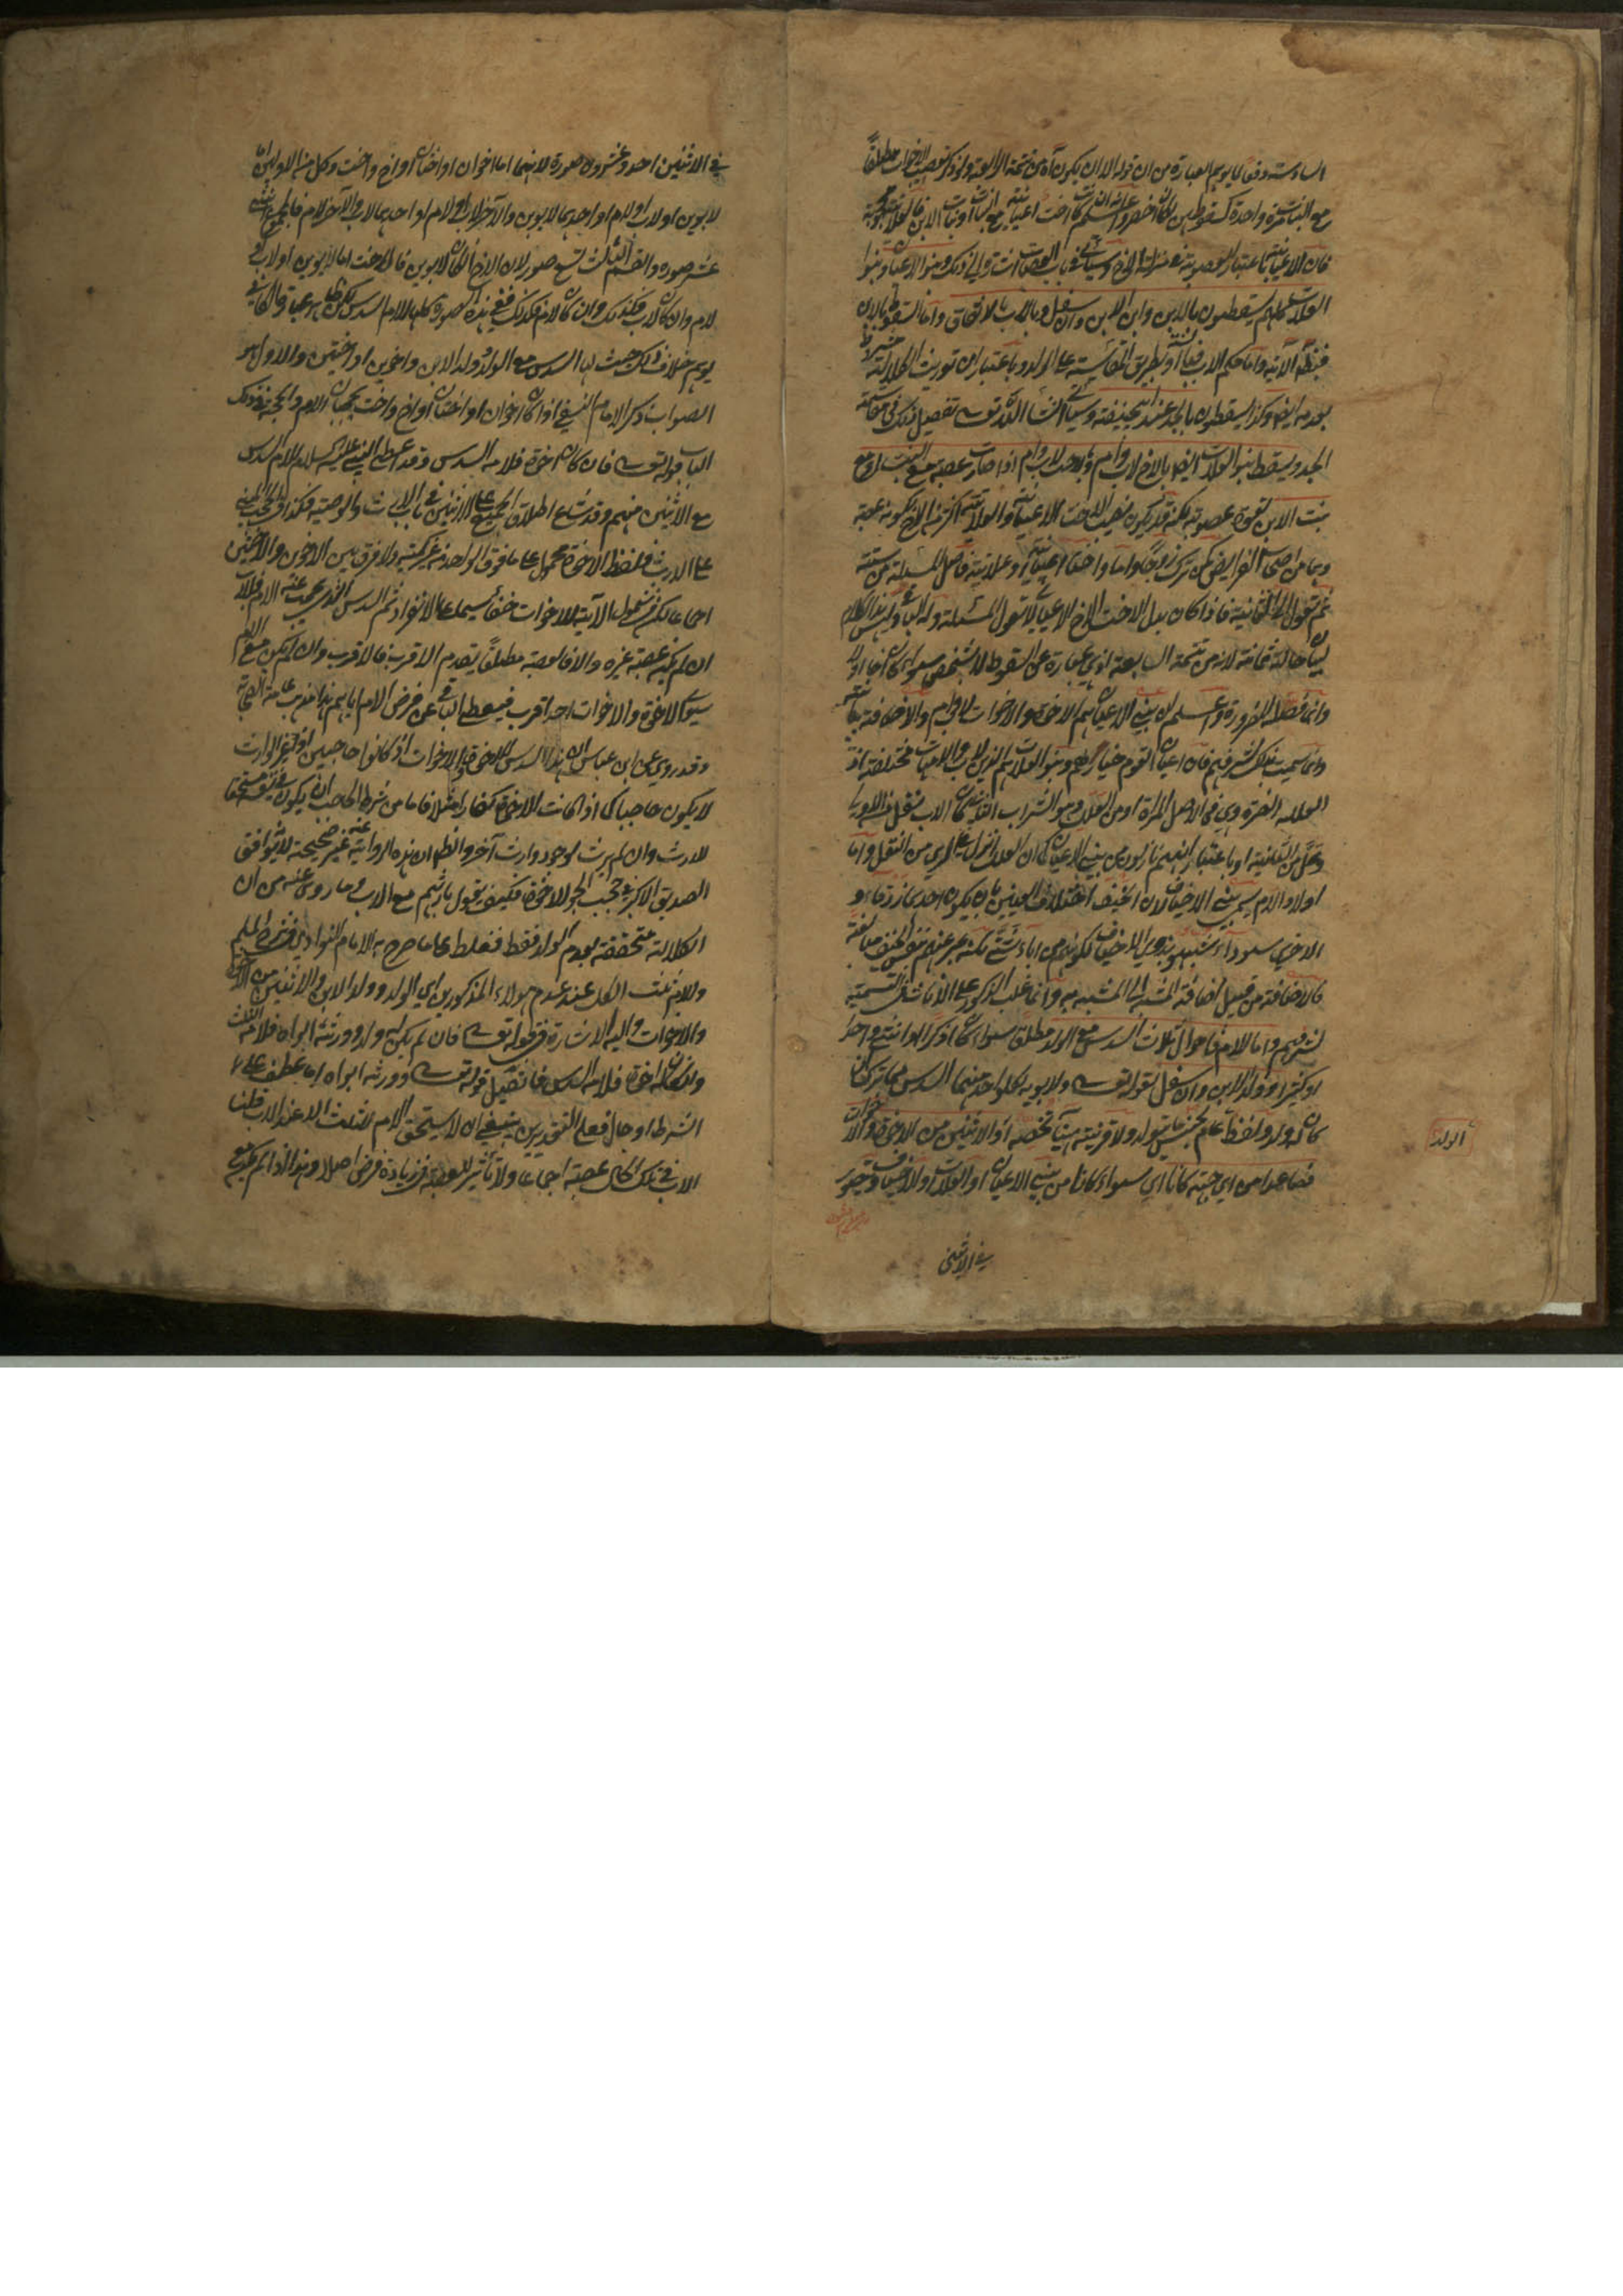 السادسة دفعا لما يوهم العبارة من ان قوله الا ان يكون آه من تتمة الرابعة ولو ذكر تعصيب الاخوات مطلقا
مع البنات مرة واحدة كسقوطهن لكان اخصر واعلم انه ان كانت اخت اعيانية مع البنات او بنات الابن فالعلاتية محجوبة
فان الاعيانية باعتبار العصوبة بمنزلة الاخ وسيأتي في باب العصبات اشارة الى ذلك وبنوا الاعيان وبنوا
العلات كلهم يسقطون بالابن وابن الابن وان سفل وبالاب بالاتفاق واما السقوط بالابن
فبنظم الآية واما حكم الاب فبطريق المقايسة على الولد وباعتبار ان توريث الكلالة مشروط
بعدمه ايضا وكذا يسقطون بالجد عند ابيحنيفة وسيأتي ان شاء الله تعالى تفصيل ذلك في مقاسمة
الجد ويسقط بنوا العلات ايضا بالاخ لاب وام وبالاخت لاب وام اذا صارت عصبة مع البنت او مع
بنت الابن لقوة عصوبته لكنه قد يكون نصيب الاخت الاعيانية او العلاتية اكثر من الاخ لكونه عصبة
وهما من اصحاب الفرايض كمن ترك زوجا واما واختا اعيانية او علاتية فاصل المسئلة من ستة
ثم تعول الى الثمانية فاذا كان بدل الاخت الاخ الاعياني لا تعول المسئلة وله الباقي وليس هذا الكلام
لبيان حالة ثامنة لانه من تتمة السابعة اذ هي عبارة عن السقوط لا بشخص سواء كان اخا او لا
وانما فصله للضرورة واعلم ان بني الاعيان هم الاخوة والاخوات لاب وام والاضافة بيانية
وانما سميت بذلك لشرفهم فان اعيان القوم خيارهم وبنوا العلات هم الذين لاب والامهات مختلفة اذ
العلة الضرة وهي في الاصل المرة او من العلل وهو الشراب الثاني كان الاب نقل من الاولى
وعل من الثانية او باعتبار انهم نازلون من بني الاعيان كما ان العلل انزل في الري من النهل واما
اولاد الام يسمى بني الاخياف لان الخيف اختلاف العينين بان يكون احديهما زرقاء و
الاخرى سوداء شبهوا بذوي الاخياف لكونهم من اباء شتى لكنه عبر عنهم بنفس الخيف مبالغة
فالاضافة من قبيل اضافة المشبه الى المشبه به وانما غلب الذكور على الاناث في التسمية
لشرفهم واما للام فاحوال ثلاث السدس مع الولد مطلقا سواء كان ذكرا او انثى واحدا
او كثيرا او ولد الابن وان سفل لقوله تعالى ولابويه لكل واحد منهما السدس مما ترك ان
كان له ولد ولفظ الولد عام بجنس ما يتولد ولا قرينة هنا تخصه او الاثنين من الاخوة والاخوات
فصاعدا من اي جهة كانا اي سواء كانا من بني الاعيان او العلات او الاخياف ويتصور
الولد
في الاثنين
في الاثنين احد وعشرون صورة لانهما اما اخوان او اختان او اخ واخت وكل من الاولين اما
لابوين او لاب او لام او احدهما لابوين والآخر لاب او لام او احدهما لاب والآخر لام فالمجموع اثنتي
عشر صورة والقسم الثالث تسع صور لان الاخ ان كان لابوين فالاخت اما لابوين او لاب او
لام وان كان لاب فكذلك وان كان لام فكذلك ففي هذه الصورة كلها للام السدس لكن ظاهر عبارة الكافي
يوهم خلاف ذلك حيث قال لها السدس مع الولد وولد الابن واخوين او اختين والاول هو
الصواب ذكر الامام النسفي اذا كان اخوان او اختان او اخ واخت يحجبان الام والحجة في ذلك
الباب قوله تعالى فان كان له اخوة فلامه السدس وقد اعطى النبي عليه السلام للام السدس
مع الاثنين منهم وقد شاع اطلاق الجمع على الاثنين في باب الارث والوصية فكذا في الحجب المبني
على الارث فلفظ الاخوة محمول على ما فوق الواحد من غير كثير ولا فرق بين الاخوين والاختين
اجماعا لكن شمول الآية للاخوات خفاء سيما على الانفراد ثم السدس الذي حجبت عنه الام فللاب
ان لم يكن عصبة غيره والا فالعصبة مطلقا يتقدم الاقرب فالاقرب وان لم يكن مع الام
سوى الاخوة والاخوات احد اقرب فيعطى الباقي عن فرض الام اياهم هذا مذهب عامة الصحابة
وقد روي عن ابن عباس ان هذا السدس للاخوة والاخوات اذ كانوا حاجبين اذ غير الوارث
لا يكون حاجبا كما اذا كانت الاخوة كفارا مثلا فاما من شرط الحاجب ان يكون مستحقا
للارث وان لم يرث لوجود وارث آخر والظاهر ان هذه الرواية عنه غير صحيحة لانه يوافق
الصديق الاكبر في حجب الجد للاخوة فكيف يقول بارثهم مع الاب وما روي عنه من ان
الكلالة متحققة بعدم الولد فقط فغلط على ما صرح به الامام النواوي في شرح المسلم
وللام ثلث الكل عند عدم هولاء المذكورين اي الولد وولد الابن والاثنين من الاخوة
والاخوات واليه الاشارة في قوله تعالى فان لم يكن له ولد وورثه ابواه فلامه الثلث
وان كان له اخوة فلامه السدس فان قيل قوله تعالى وورثه ابواه اما عطف على
الشرط او حال فعلى التقديرين ينبغي ان لا يستحق الام للثلث الا عند الاب قلنا
الاب في تلك الحال عصبة اجماعا ولا تأثير للعصبة في زيادة فرض اصلا وهذا اذا لم يكن مع